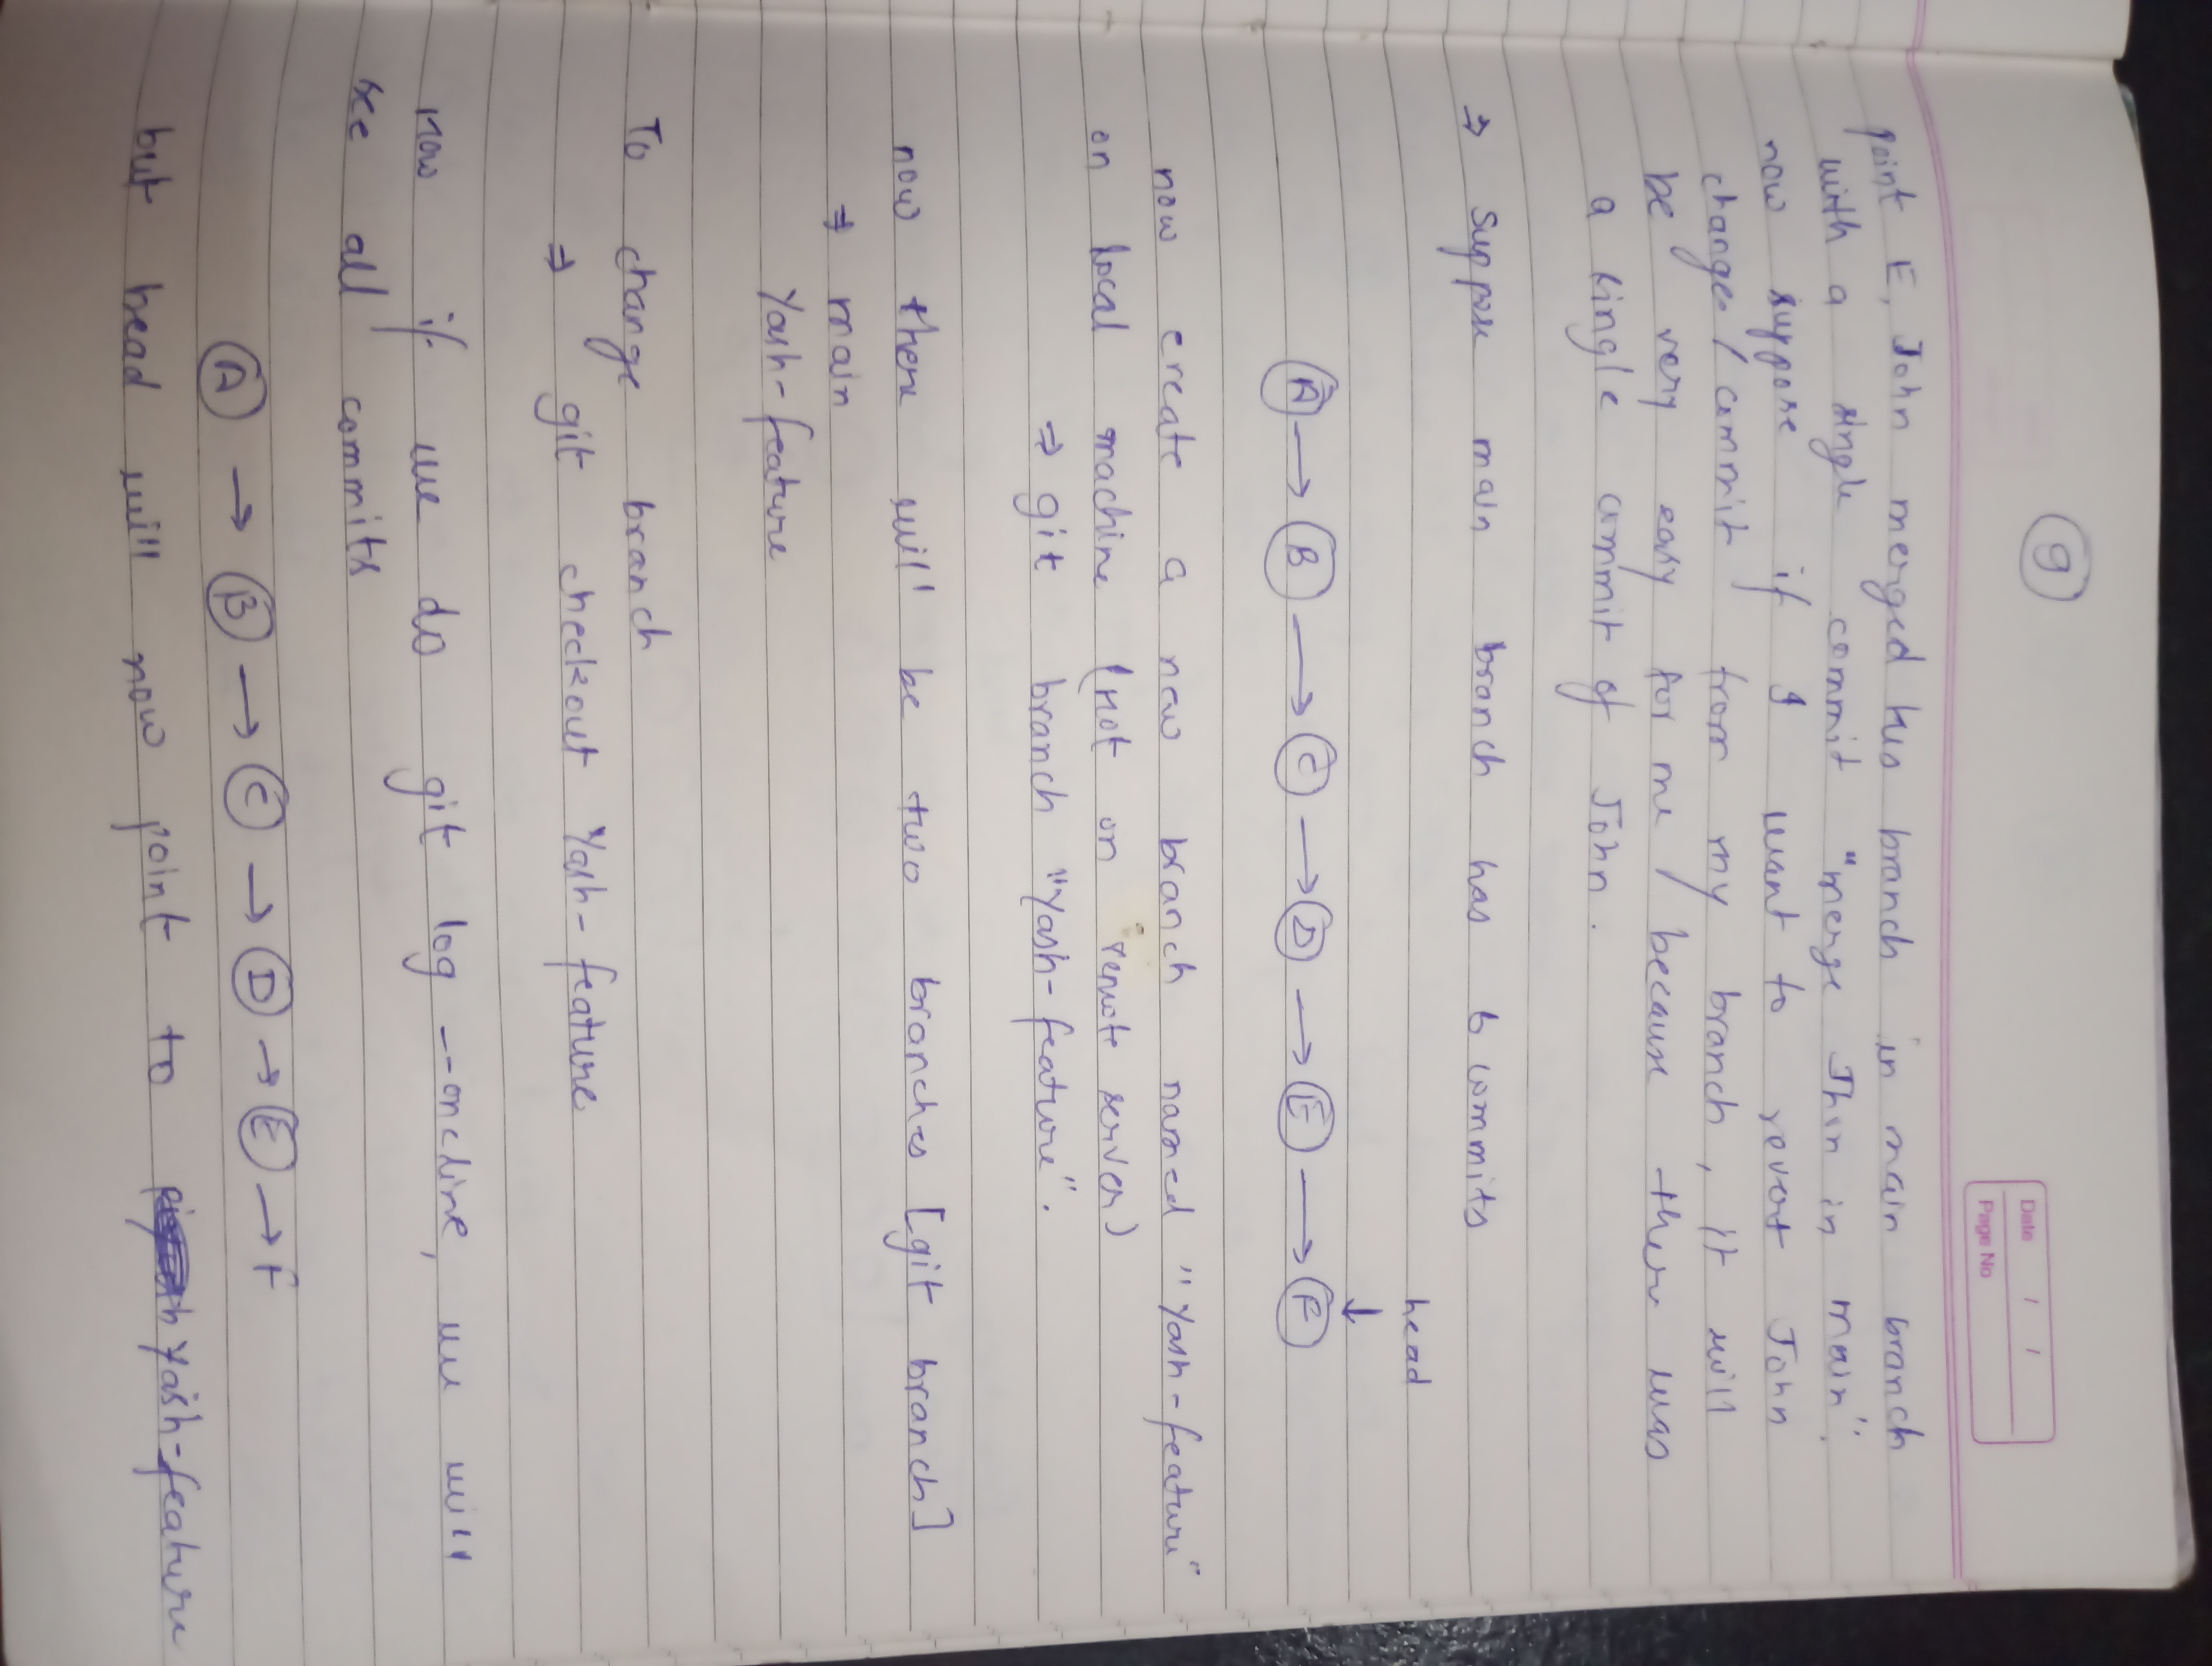 9
Date / /
Page No
point E, John merged his branch in main branch
with a single commit "merge Thin in main".
now suppose if I want to revert John
changes / commit from my branch, it will
be very easy for me / because there was
a single commit of John.
→ Suppose main branch has 6 commits
head
↓
A → B → C → D → E → F
now create a new branch named "Yash-feature"
on local machine (not on remote server)
⇒ git branch "Yash-feature".
now there will be two branches [git branch]
⇒ main
Yash-feature
To change branch
⇒ git checkout Yash-feature
now if we do git log --oneline, we will
see all commits
A → B → C → D → E → F
but head will now point to Yash-feature